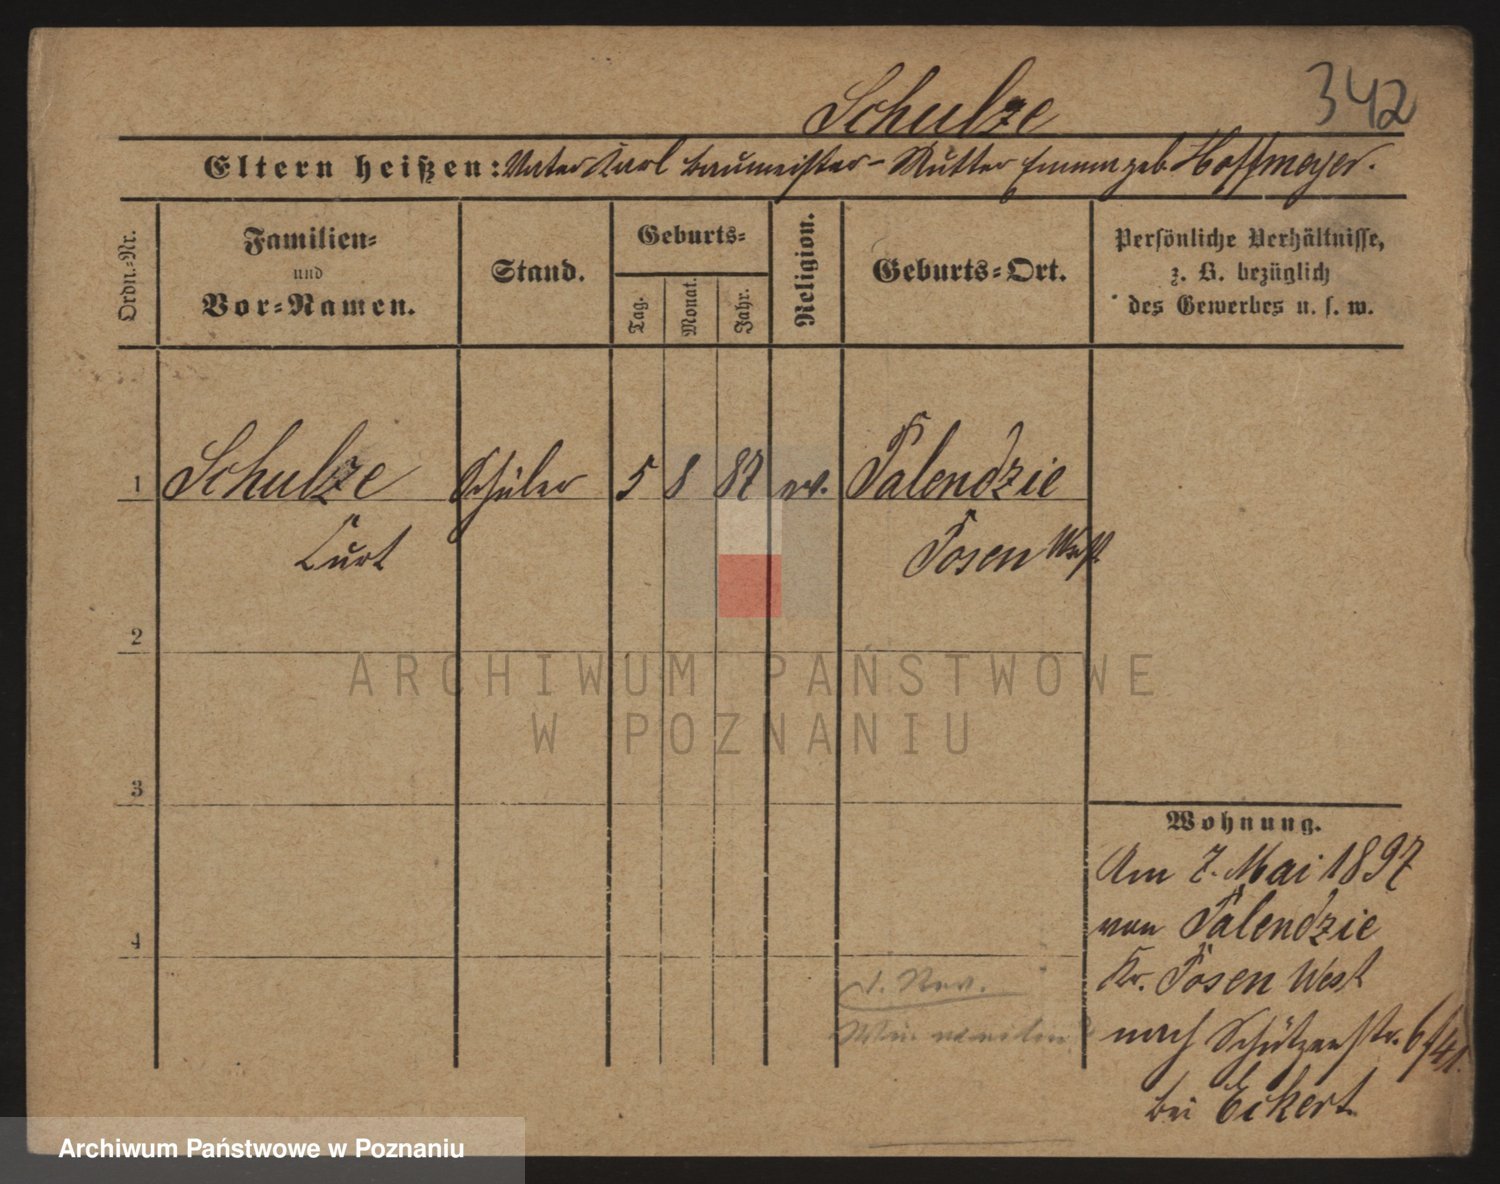 Schulze
342
Eltern heißen: Vater Karl Baumeister – Mutter Emma geb. Hoffmeyer.
Ordn.-Nr.
Familien-
und
Vor-Namen.
Stand.
Geburts-
Tag.
Monat.
Jahr.
Religion.
Geburts-Ort.
Persönliche Verhältnisse,
z. B. bezüglich
des Gewerbes u. s. w.
1 Schulze Schüler 5 8 87 ev. Palendzie
Curt Posen West
2
3
4
Wohnung.
Am 7. Mai 1897
von Palendzie
Kr. Posen West
nach Schützenstr. 6/41.
bei Eckert
ARCHIWUM PAŃSTWOWE
W POZNANIU
Archiwum Państwowe w Poznaniu